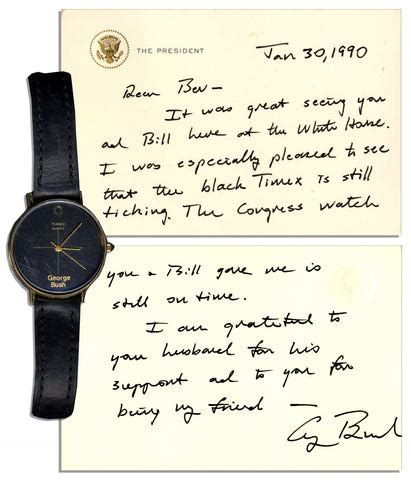 THE PRESIDENT
Jan 30, 1990
Dear Bev-
It was great seeing you
and Bill here at the White House.
I was especially pleased to see
that the black Timex is still
ticking. The Congress watch
you & Bill gave me is
still on time.
I am grateful to
your husband for his
support and to you for
being my friend -
G Bush
TIMEX
QUARTZ
George
Bush